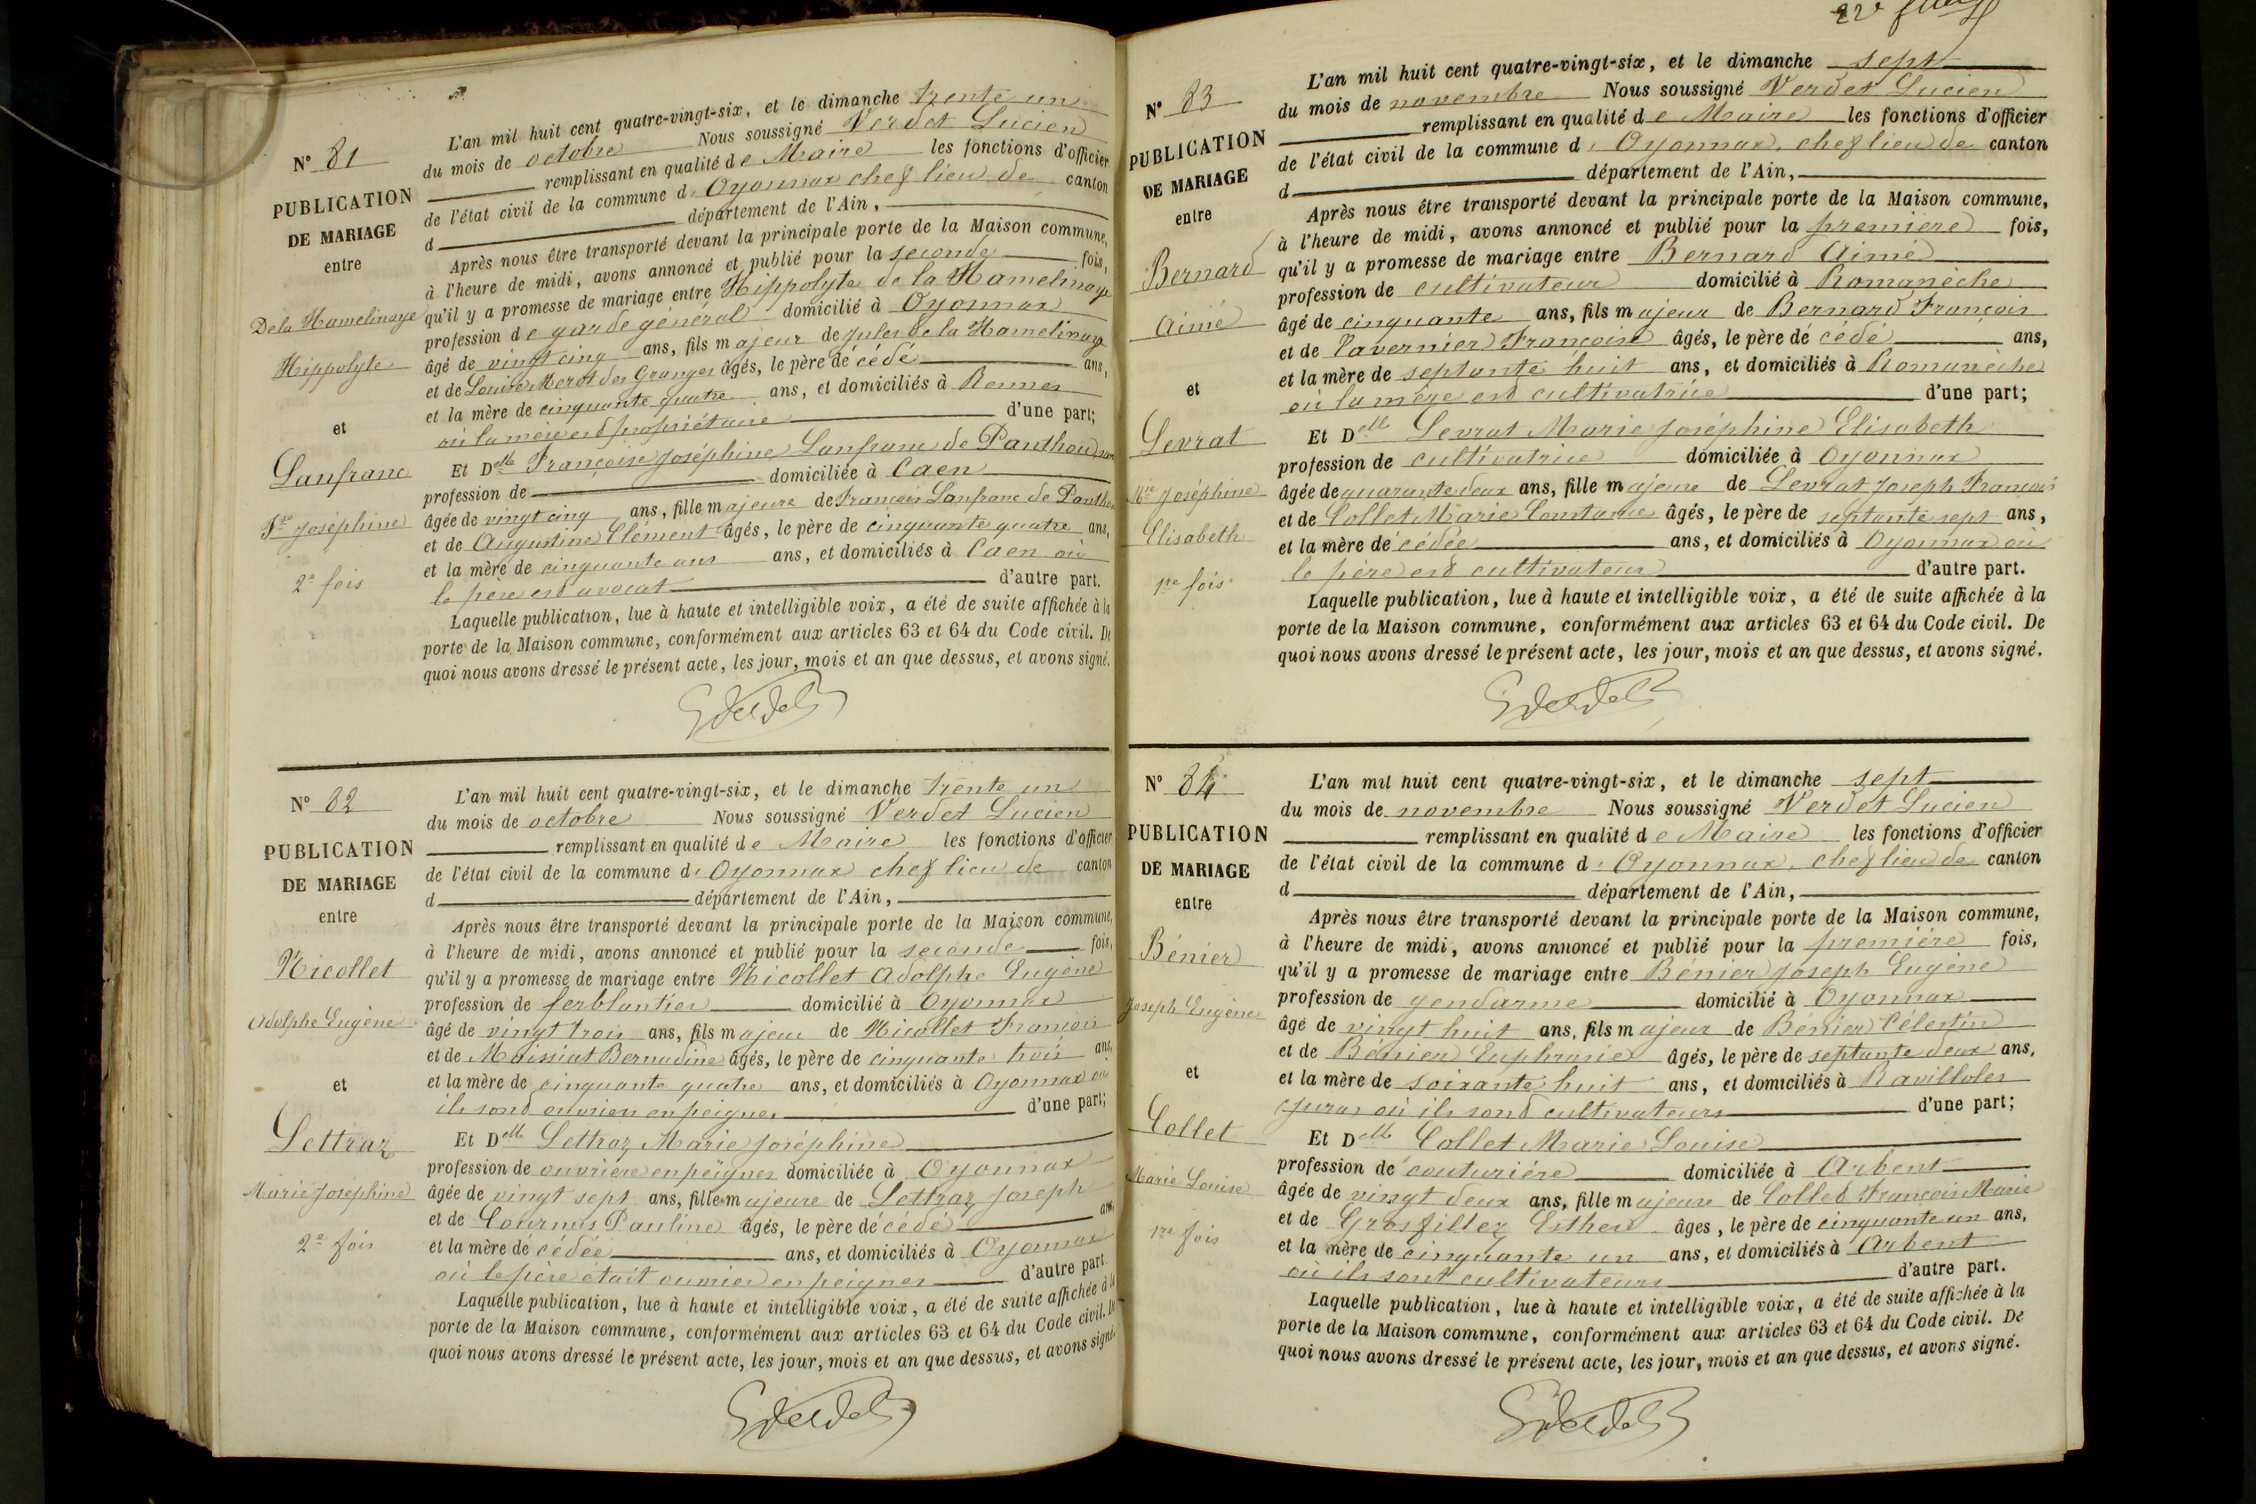 N° 81
PUBLICATION
DE MARIAGE
entre
De la Hamelinaye
Hippolyte
et
Lanfranc
Fse Joséphine
2e fois
L'an mil huit cent quatre-vingt-six, et le dimanche trente un
du mois de octobre Nous soussigné Verdet Lucien
remplissant en qualité de Maire les fonctions d'officier
de l'état civil de la commune d' Oyonnax chef lieu de canton
d département de l'Ain,
Après nous être transporté devant la principale porte de la Maison commune,
à l'heure de midi, avons annoncé et publié pour la seconde fois,
qu'il y a promesse de mariage entre Hippolyte de la Hamelinaye
profession de garde général domicilié à Oyonnax
âgé de vingt cinq ans, fils majeur de Jules de la Hamelinaye
et de Louise Merot des Granges âgés, le père décédé ans,
et la mère de cinquante quatre ans, et domiciliés à Rennes
où la mère est propriétaire d'une part;
Et Delle Françoise Joséphine Lanfranc de Panthou
profession de domiciliée à Caen
âgée de vingt cinq ans, fille majeure de François Lanfranc de Panthou
et de Augustine Clément âgés, le père de cinquante quatre ans,
et la mère de cinquante ans, et domiciliés à Caen où
le père est avocat d'autre part.
Laquelle publication, lue à haute et intelligible voix, a été de suite affichée à la
porte de la Maison commune, conformément aux articles 63 et 64 du Code civil. De
quoi nous avons dressé le présent acte, les jour, mois et an que dessus, et avons signé.
N° 82
PUBLICATION
DE MARIAGE
entre
Nicollet
Adolphe Eugène
et
Lettraz
Marie Joséphine
2e fois
L'an mil huit cent quatre-vingt-six, et le dimanche trente un
du mois de octobre Nous soussigné Verdet Lucien
remplissant en qualité de Maire les fonctions d'officier
de l'état civil de la commune d' Oyonnax chef lieu de canton
d département de l'Ain,
Après nous être transporté devant la principale porte de la Maison commune,
à l'heure de midi, avons annoncé et publié pour la seconde fois,
qu'il y a promesse de mariage entre Nicollet Adolphe Eugène
profession de ferblantier domicilié à Oyonnax
âgé de vingt trois ans, fils majeur de Nicollet François
et de Moissiat Bernadine âgés, le père de cinquante trois ans,
et la mère de cinquante quatre ans, et domiciliés à Oyonnax où
ils sont ouvriers en peignes d'une part;
Et Delle Lettraz Marie Joséphine
profession de ouvrière en peignes domiciliée à Oyonnax
âgée de vingt sept ans, fille majeure de Lettraz Joseph
et de Pauline âgés, le père décédé ans,
et la mère décédée ans, et domiciliés à Oyonnax
où le père était ouvrier en peignes d'autre part.
Laquelle publication, lue à haute et intelligible voix, a été de suite affichée à la
porte de la Maison commune, conformément aux articles 63 et 64 du Code civil. De
quoi nous avons dressé le présent acte, les jour, mois et an que dessus, et avons signé.
N° 83
PUBLICATION
DE MARIAGE
entre
Bernard
Aimé
et
Levrat
Mie Joséphine
Elisabeth
1re fois
L'an mil huit cent quatre-vingt-six, et le dimanche sept
du mois de novembre Nous soussigné Verdet Lucien
remplissant en qualité de Maire les fonctions d'officier
de l'état civil de la commune d' Oyonnax, chef lieu de canton
d département de l'Ain,
Après nous être transporté devant la principale porte de la Maison commune,
à l'heure de midi, avons annoncé et publié pour la première fois,
qu'il y a promesse de mariage entre Bernard Aimé
profession de cultivateur domicilié à Romanèche
âgé de cinquante ans, fils majeur de Bernard François
et de Tavernier Françoise âgés, le père décédé ans,
et la mère de septante huit ans, et domiciliés à Romanèche
où la mère est cultivatrice d'une part;
Et Delle Levrat Marie Joséphine Elisabeth
profession de cultivatrice domiciliée à Oyonnax
âgée de quarante deux ans, fille majeure de Levrat Joseph François
et de Collet Marie Constance âgés, le père de septante sept ans,
et la mère décédée ans, et domiciliés à Oyonnax où
le père est cultivateur d'autre part.
Laquelle publication, lue à haute et intelligible voix, a été de suite affichée à la
porte de la Maison commune, conformément aux articles 63 et 64 du Code civil. De
quoi nous avons dressé le présent acte, les jour, mois et an que dessus, et avons signé.
N° 84
PUBLICATION
DE MARIAGE
entre
Bénier
Joseph Eugène
et
Collet
Marie Louise
1re fois
L'an mil huit cent quatre-vingt-six, et le dimanche sept
du mois de novembre Nous soussigné Verdet Lucien
remplissant en qualité de Maire les fonctions d'officier
de l'état civil de la commune d' Oyonnax, chef lieu de canton
d département de l'Ain,
Après nous être transporté devant la principale porte de la Maison commune,
à l'heure de midi, avons annoncé et publié pour la première fois,
qu'il y a promesse de mariage entre Bénier Joseph Eugène
profession de gendarme domicilié à Oyonnax
âgé de vingt huit ans, fils majeur de Bénier Célestin
et de Bénier Euphrasie âgés, le père de septante deux ans,
et la mère de soixante huit ans, et domiciliés à Ravilloles
Jura où ils sont cultivateurs d'une part;
Et Delle Collet Marie Louise
profession de couturière domiciliée à Arbent
âgée de vingt deux ans, fille majeure de Collet François Marie
et de Grosfillez Esther âges, le père de cinquante un ans,
et la mère de cinquante un ans, et domiciliés à Arbent
où ils sont cultivateurs d'autre part.
Laquelle publication, lue à haute et intelligible voix, a été de suite affichée à la
porte de la Maison commune, conformément aux articles 63 et 64 du Code civil. De
quoi nous avons dressé le présent acte, les jour, mois et an que dessus, et avons signé.